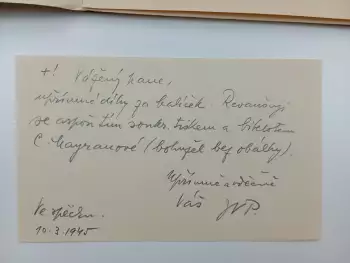 +! Vážený pane,
upřímné díky za balíček. Revanšuji
se aspoň tím soukr. tiskem a
C. Mayranové (bohužel bez obálky).
Upřímně a vděčně
Váš JVP.
Ve spěchu.
10.3.1945